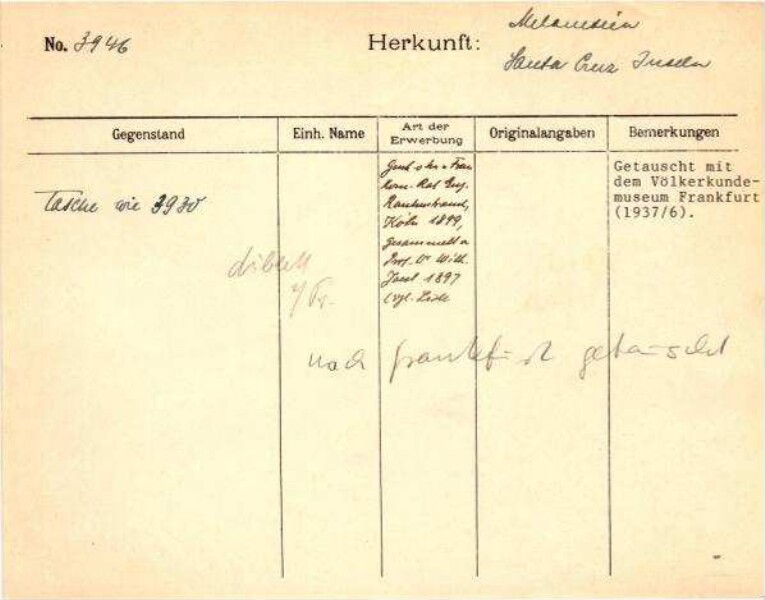 No. 3946
Herkunft:
Melanesien
Santa Cruz Inseln
Gegenstand
Einh. Name
Art der
Erwerbung
Originalangaben
Bemerkungen
Tasche wie 3930
Gesch. v. Hr. u. Frau
Kom. Rat Eug.
Rautenstrauch,
Köln 1899,
gesammelt v.
Prof. Dr. Wilh.
Joest 1897
(vgl. Liste
Getauscht mit
dem Völkerkunde-
museum Frankfurt
(1937/6).
nach Frankfurt getauscht